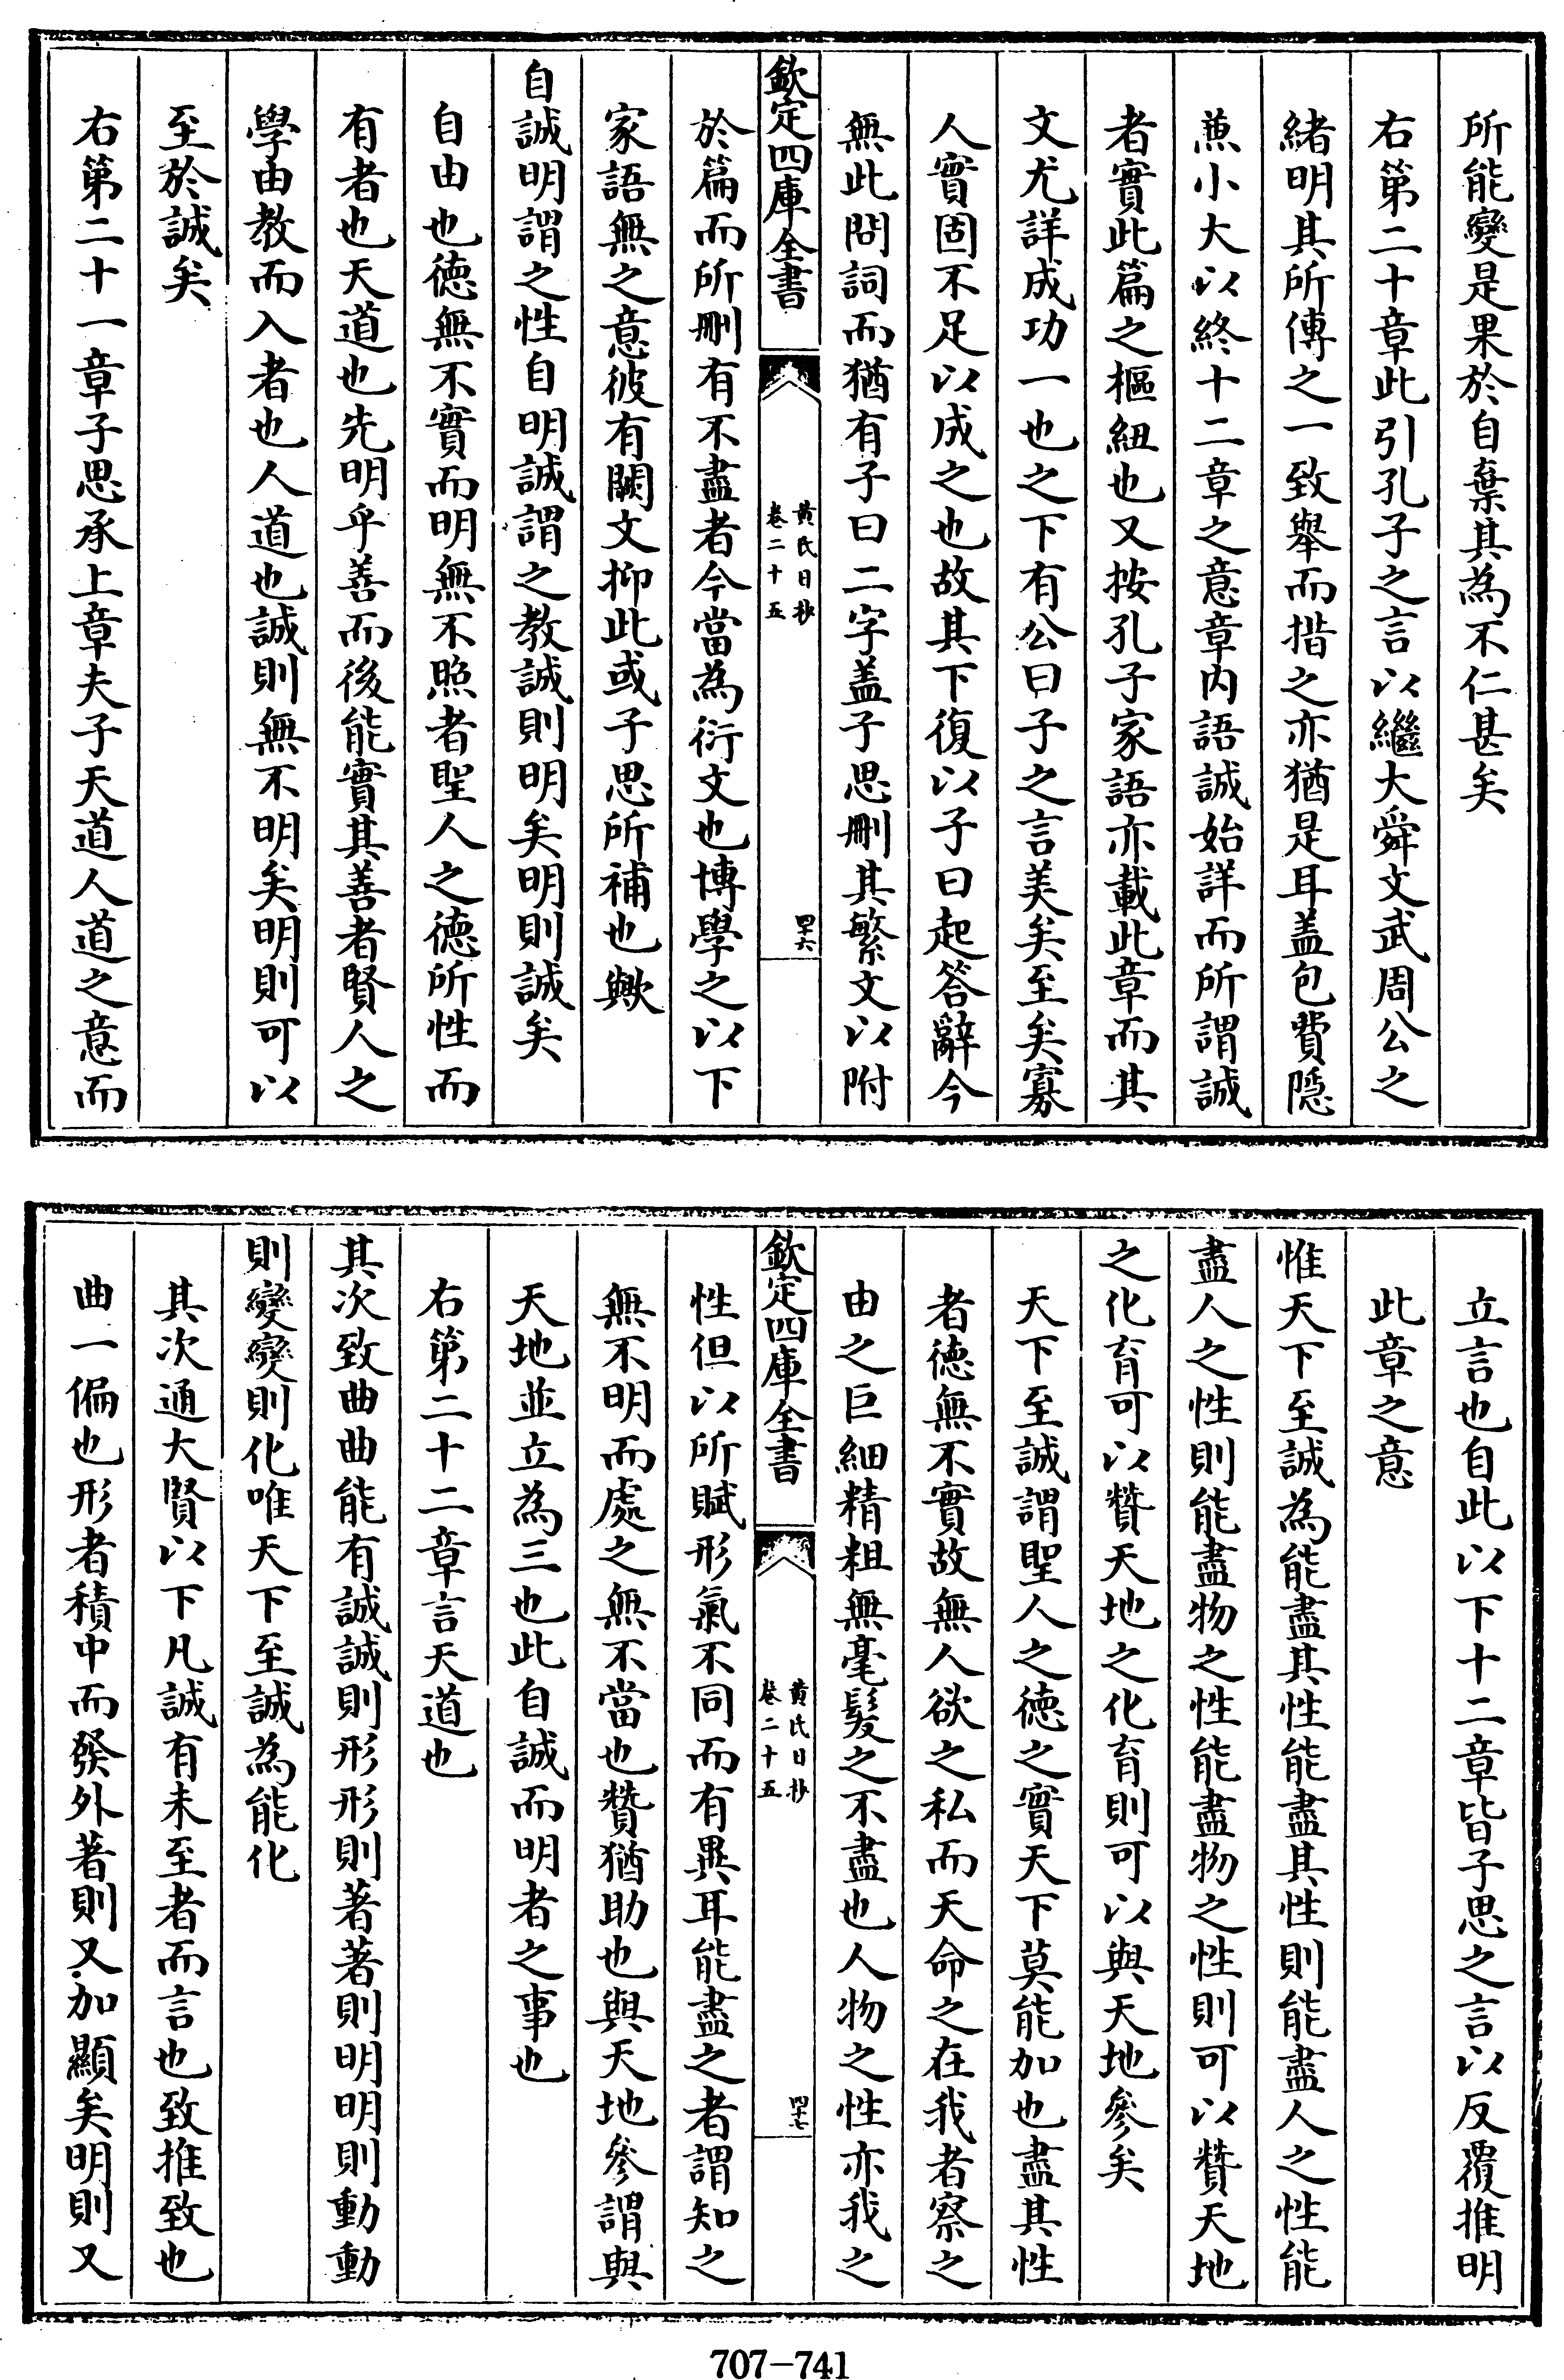 所能變是果於自棄其為不仁甚矣
右第二十章此引孔子之言以繼大舜文武周公之
緒明其所傳之一致舉而措之亦猶是耳盖包費隠
兼小大以終十二章之意章内語誠始詳而所謂誠
者實此篇之樞紐也又按孔子家語亦載此章而其
文尤詳成功一也之下有公曰子之言美矣至矣寡
人實固不足以成之也故其下復以子曰起答辭今
無此問詞而猶有子曰二字盖子思刪其繁文以附
欽定四庫全書
黄氏日抄
卷二十五
四十六
於篇而所刪有不盡者今當為衍文也博學之以下
家語無之意彼有闕文抑此或子思所補也歟
自誠明謂之性自明誠謂之教誠則明矣明則誠矣
自由也德無不實而明無不照者聖人之德所性而
有者也天道也先明乎善而後能實其善者賢人之
學由教而入者也人道也誠則無不明矣明則可以
至於誠矣
右第二十一章子思承上章夫子天道人道之意而
立言也自此以下十二章皆子思之言以反覆推明
此章之意
惟天下至誠為能盡其性能盡其性則能盡人之性能
盡人之性則能盡物之性能盡物之性則可以贊天地
之化育可以贊天地之化育則可以與天地參矣
天下至誠謂聖人之德之實天下莫能加也盡其性
者德無不實故無人欲之私而天命之在我者察之
由之巨細精粗無毫髮之不盡也人物之性亦我之
欽定四庫全書
黄氏日抄
卷二十五
四十七
性但以所賦形氣不同而有異耳能盡之者謂知之
無不明而處之無不當也贊猶助也與天地參謂與
天地並立為三也此自誠而明者之事也
右第二十二章言天道也
其次致曲曲能有誠誠則形形則著著則明明則動動
則變變則化唯天下至誠為能化
其次通大賢以下凡誠有未至者而言也致推致也
曲一偏也形者積中而發外著則又加顯矣明則又
707-741